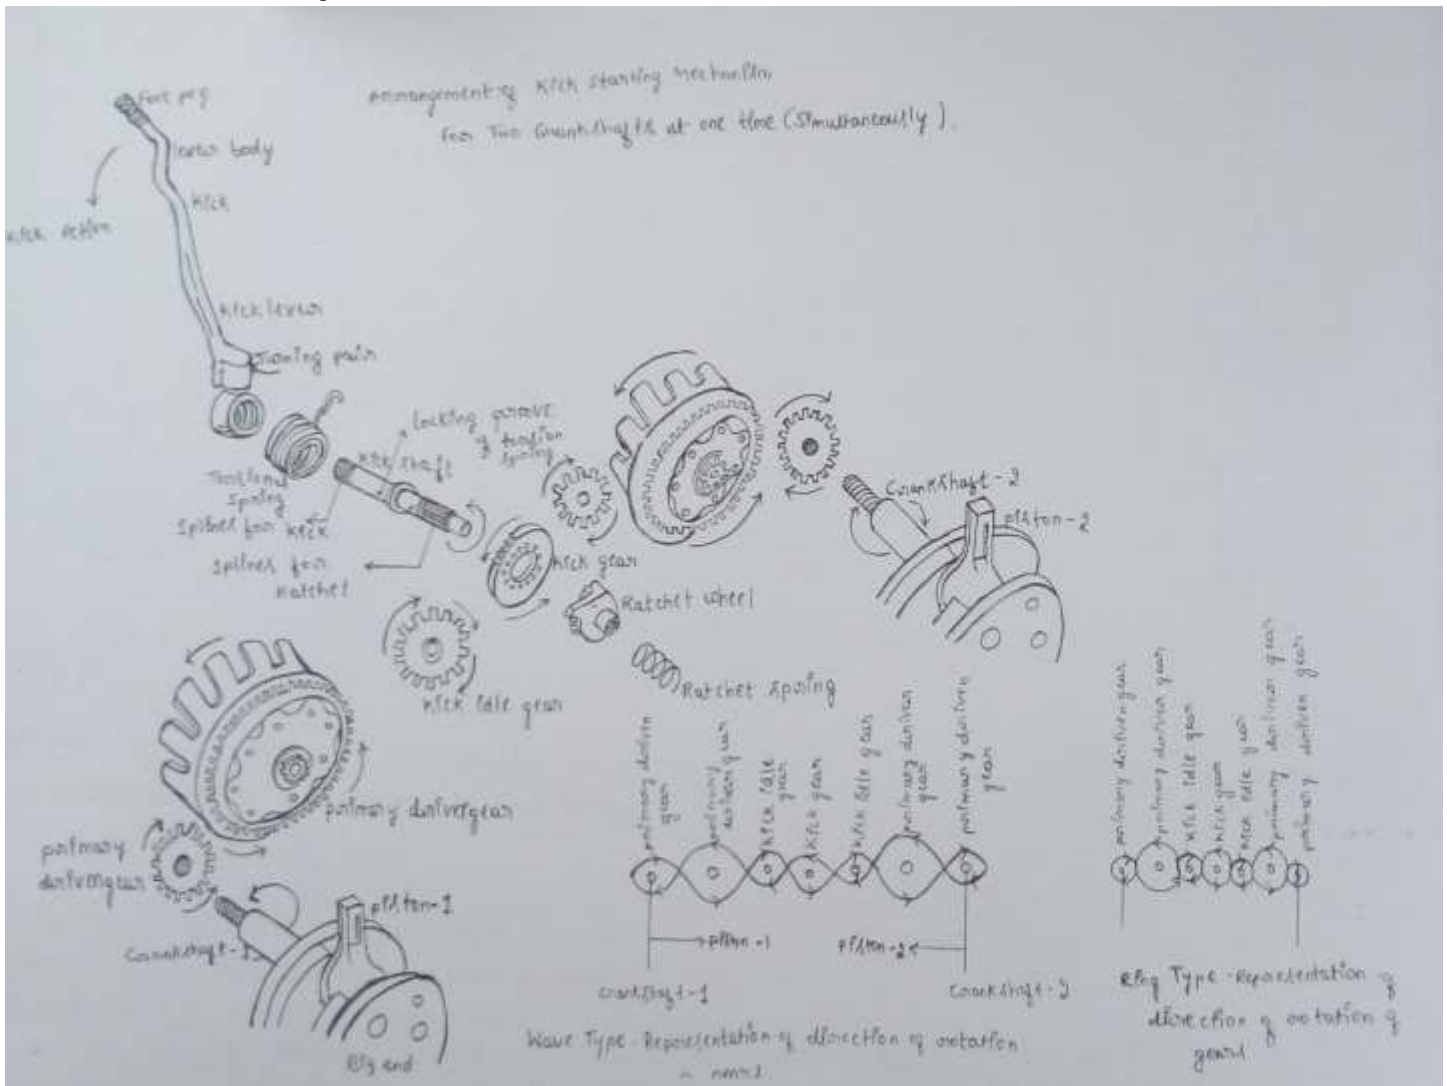 Arrangement of Kick starting mechanism
for Two Crankshafts at one time (Simultaneously).
Foot peg
lever body
Kick
Kick action
Kick lever
Turning pair
locking groove
of torsion
spring
Kick shaft
Torsional
Spring
Splines for Kick
Splines for
Ratchet
Kick gear
Ratchet wheel
Ratchet spring
Kick Idle gear
Crankshaft-2
piston-2
primary drivergear
primary
drivengear
piston-1
Crankshaft-1
Big end
primary driven
gear
primary
driver gear
Kick Idle
gear
Kick gear
Kick Idle gear
primary driver
gear
primary driven
gear
piston-1
piston-2
Crankshaft-1
Crankshaft-2
Wave Type Representation of direction of rotation
primary driven gear
primary driver gear
Kick Idle gear
Kick gear
Kick Idle gear
primary driver gear
primary driven gear
Ring Type Representation of
direction of rotation of
gears